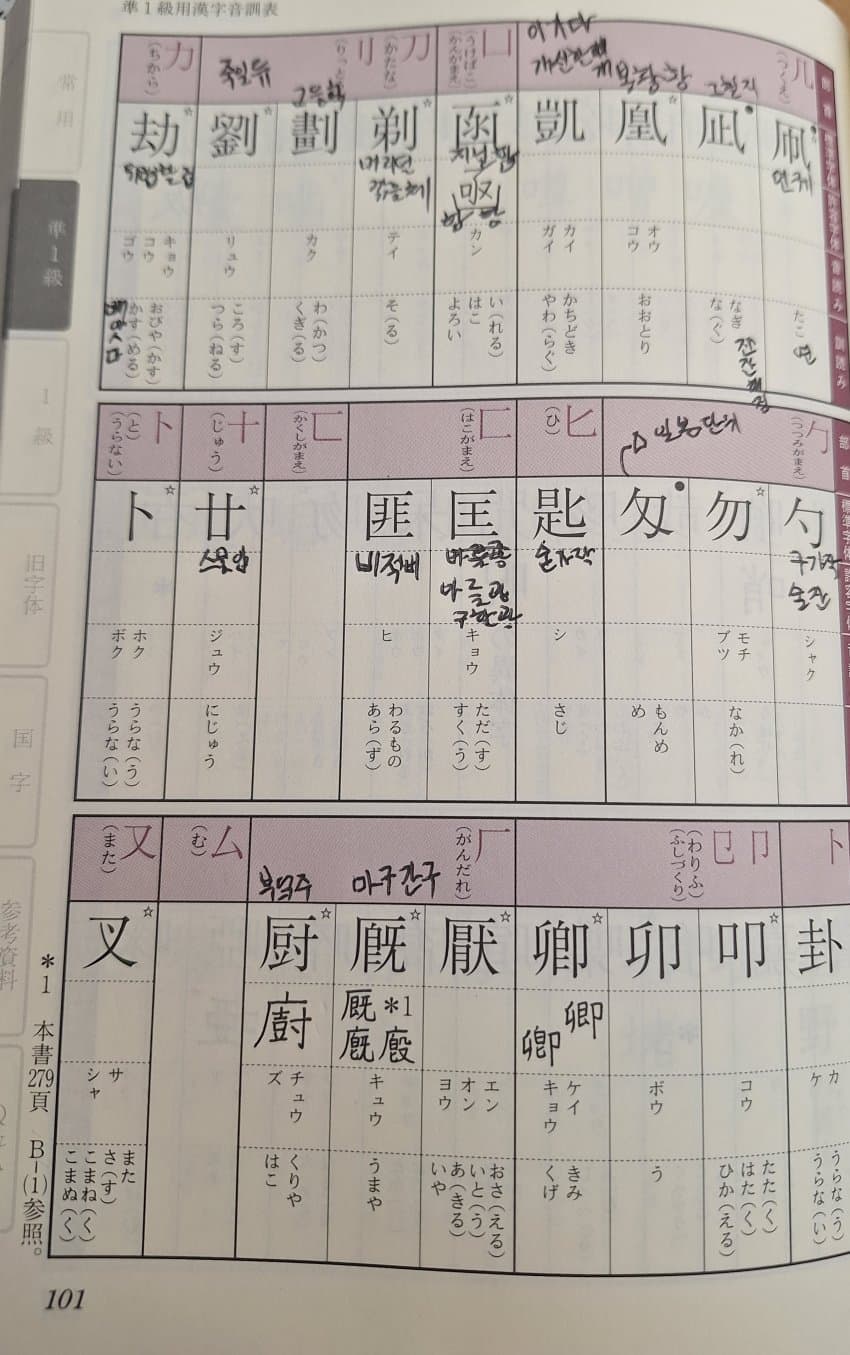 準１級用漢字音訓表
部首
標準字体
許容字体
音読み
訓読み
几
(つくえ)
凧
연
たこ
연
凪
그칠 지
なぎ
な(ぐ)
凰
봉황 황
オウ
コウ
おおとり
凱
カイ
ガイ
かちどき
やわ(らぐ)
凵
(うけばこ)
(かんがまえ)
函
カン
い(れる)
はこ
よろい
刀
(かたな)
剃
テイ
そ(る)
刂
(りっとう)
劃
그을 획
カク
わ(かつ)
くぎ(る)
劉
죽일 류
リュウ
ころ(す)
つら(ねる)
力
(ちから)
劫
キョウ
コウ
ゴウ
おびや(かす)
かす(める)
部首
標準字体
許容字体
勹
(つつみがまえ)
勺
구기 작
술잔
シャク
勿
モチ
ブツ
なか(れ)
匁
일본 단위
もんめ
め
匕
(ひ)
匙
숟가락
シ
さじ
匚
(はこがまえ)
匡
キョウ
ただ(す)
すく(う)
匪
비적 비
ヒ
わるもの
あら(ず)
匸
(かくしがまえ)
十
(じゅう)
廿
스물 입
ジュウ
にじゅう
卜
(と)
(うらない)
卜
ホク
ボク
うらな(う)
うらな(い)
卜
卦
カ
ケ
うらな(う)
うらな(い)
卩
㔾
(わりふ)
(ふしづくり)
叩
コウ
たた(く)
はた(く)
ひか(える)
卯
ボウ
う
卿
卿
卿
ケイ
キョウ
きみ
くげ
厂
(がんだれ)
厭
エン
オン
ヨウ
おさ(える)
いと(う)
あ(きる)
いや
厩
마구간 구
厩 *1
廐 廏
キュウ
うまや
厨
부엌 주
廚
チュウ
ズ
くりや
はこ
ム
(む)
又
(また)
叉
サ
シャ
また
さ(す)
こまね(く)
こまぬ(く)
*1 本書279頁 B-(1)参照。
101
常用
準1級
1級
旧字体
国字
参考資料